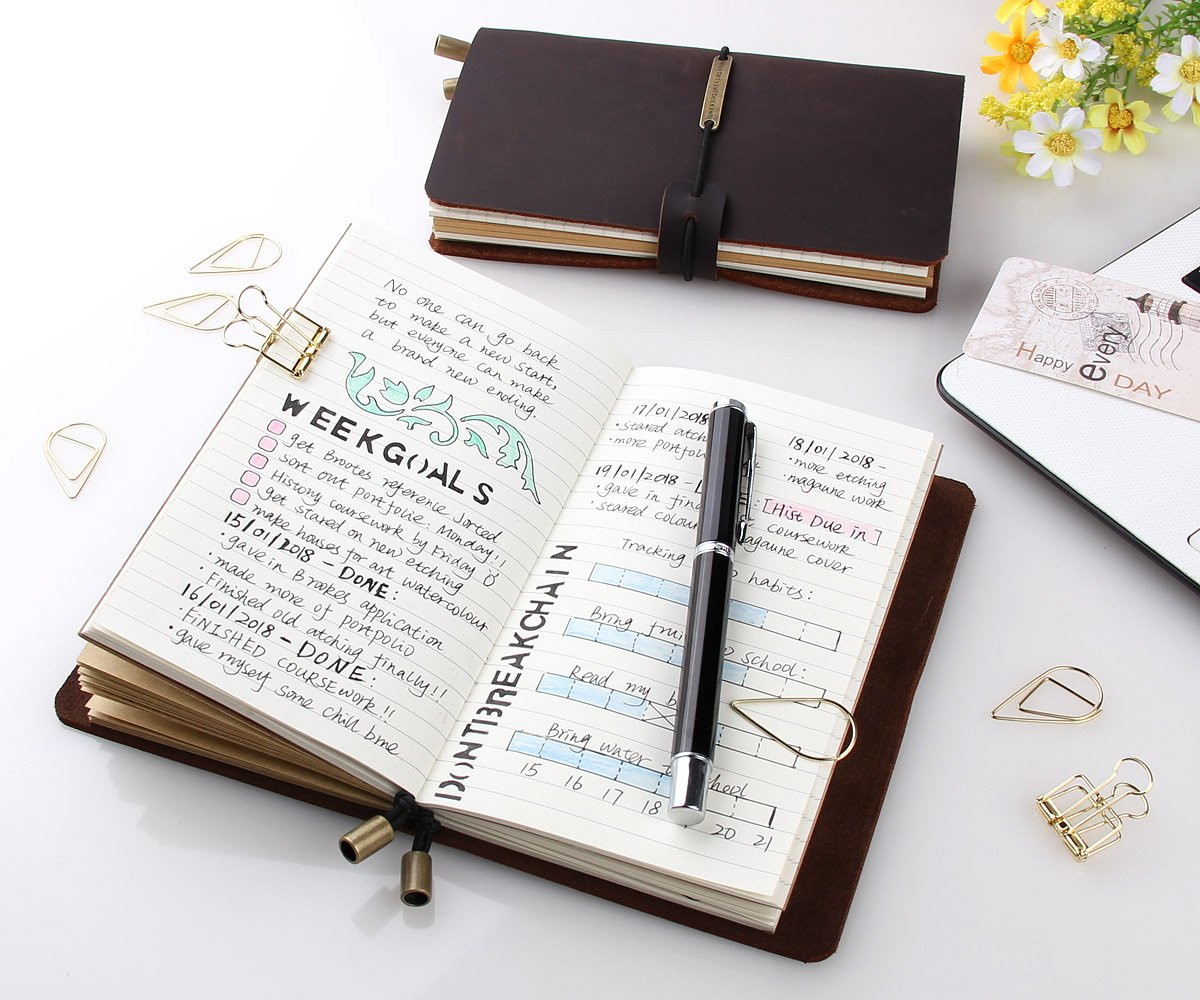 No one can go back
to make a new start,
but everyone can make
a brand new ending.
WEEKGOALS
get Brootes reference Jorted
Sort out portfolie: Monday!!
History coursework by Friday
get stared on new etching
make houses for art watercolour
15/01/2018 - DONE:
• gave in Brookes application
• made more of portpolio
• Finished old atching finally!!
16/01/2018 - DONE:
• FiNiSHED COURSEWORK!!
• gave myseyf some chill bme
17/01/2018
• stared atch
• more portfol
18/01/2018 -
• more etching
• magaune work
19/01/2018 -
• gave in fina
: [Hist Due in]
coursework
• stared colou
magaune cover
DONTBREAKCHAIN
Tracking
habits:
Bring frui
school:
Read my b
Bring water
school
15 16 17 18 20 21
Happy every DAY